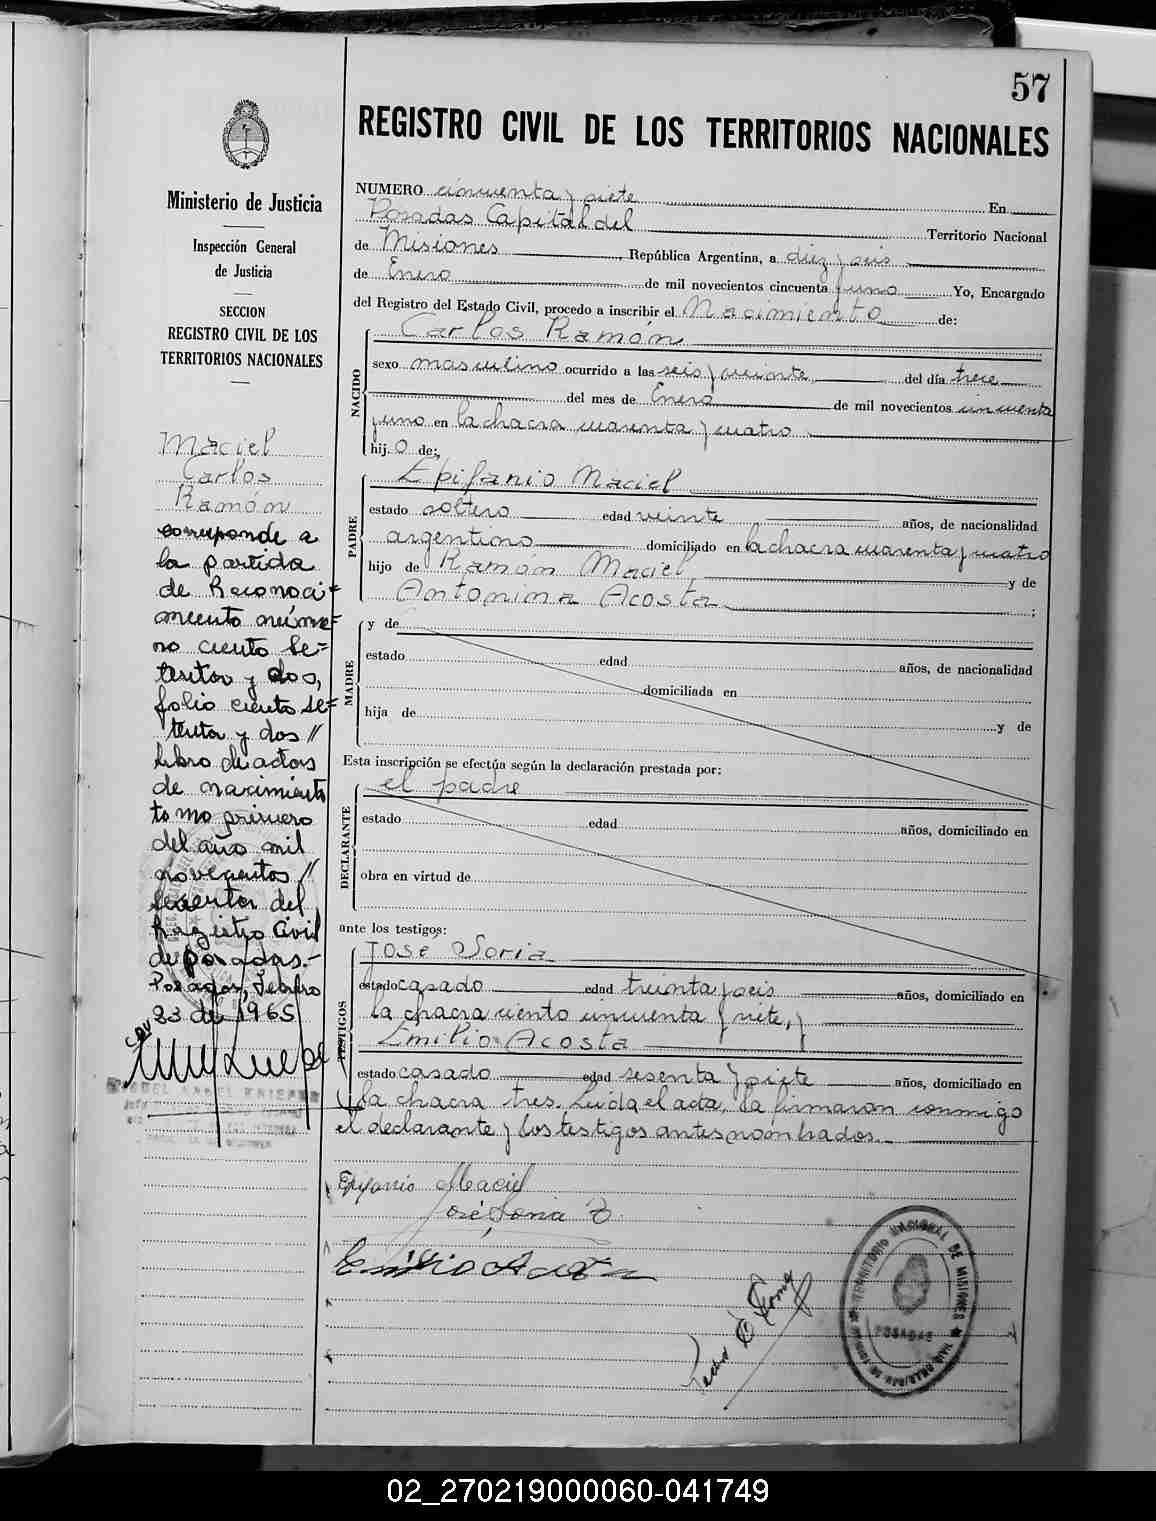 57
REGISTRO CIVIL DE LOS TERRITORIOS NACIONALES
Ministerio de Justicia
Inspección General
de Justicia
SECCION
REGISTRO CIVIL DE LOS
TERRITORIOS NACIONALES
Maciel
Carlos
Ramón
corresponde a
la partida
de Reconoci=
miento núme=
ro ciento se=
tenta y dos,
folio ciento se=
tenta y dos //
libro de actas
de nacimiento
tomo primero
del año mil
novecientos //
del
Registro Civil
de posadas.-
Posadas, Febrero
23 de 1965
NUMERO cincuenta y siete En
Posadas Capital del Territorio Nacional
de Misiones, República Argentina, a diez y seis
de Enero de mil novecientos cincuenta y uno Yo, Encargado
del Registro del Estado Civil, procedo a inscribir el Nacimiento de:
NACIDO
Carlos Ramón
sexo masculino ocurrido a las seis y veinte del día trece
del mes de Enero de mil novecientos cincuenta
y uno en la chacra cuarenta y cuatro
hij.o de:
PADRE
Epifanio Maciel
estado soltero edad veinte años, de nacionalidad
argentino domiciliado en la chacra cuarenta y cuatro
hijo de Ramón Maciel y de
Antonina Acosta ;
MADRE
y de
estado edad años, de nacionalidad
domiciliada en
hija de y de
Esta inscripción se efectúa según la declaración prestada por:
DECLARANTE
el padre
estado edad años, domiciliado en
obra en virtud de
ante los testigos:
TESTIGOS
José Soria
estado casado edad treinta y seis años, domiciliado en
la chacra ciento cincuenta y siete, y
Emilio Acosta
estado casado edad sesenta y siete años, domiciliado en
la chacra tres. Leida el acta, la firmaron conmigo
el declarante y los testigos antes nombrados.
Epifanio Maciel
José Soria
Emilio Acosta
TERRITORIO NACIONAL DE MISIONES
POSADAS
02_270219000060-041749